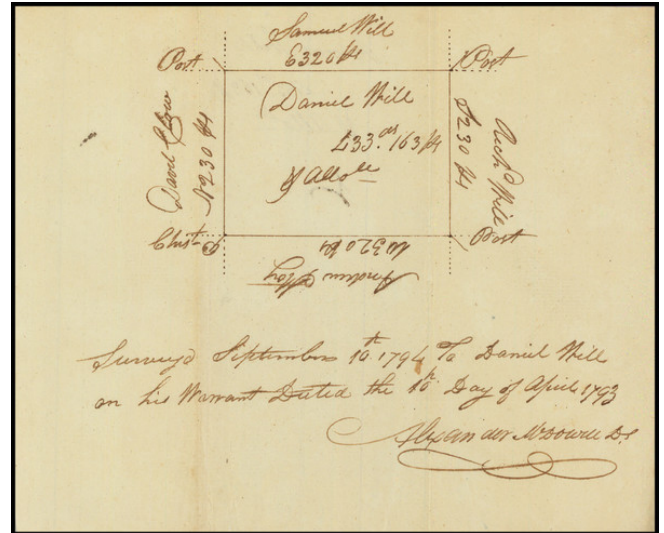 Samuel Will
E 320 ps
Post
Post
Daniel Will
433.as 163 ps
& allo
David
N 230 ps
Archd Will
S 230 ps
Chest-
Post
W 320 ps
Andrew
Surveyd September 10th 1794 To Daniel Will
on his Warrant Dated the 10th Day of April 1793
Alexander McDowell D.S.